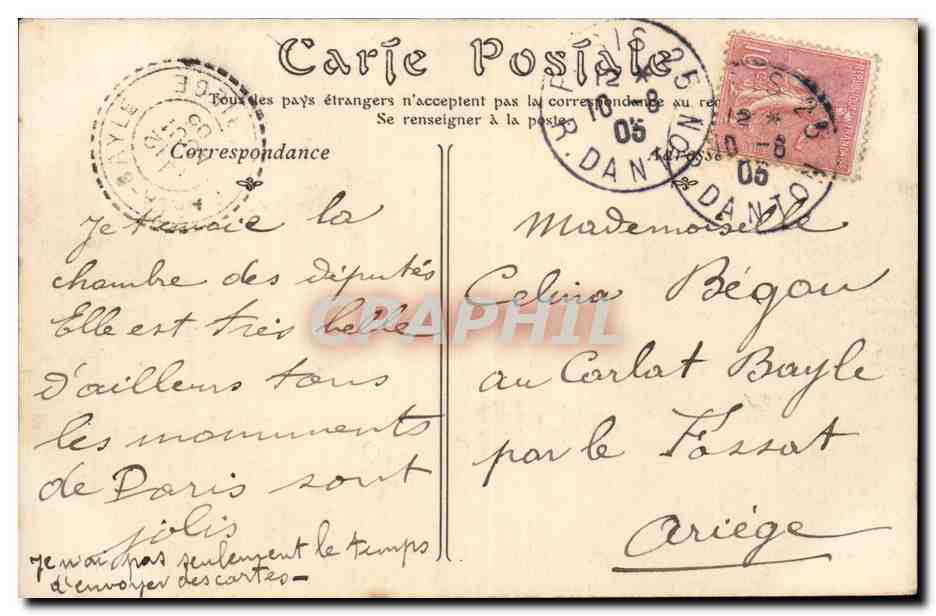 Carte Postale
Tous les pays étrangers n'acceptent pas la correspondance au rec
Se renseigner à la poste.
Correspondance
Adresse
Je t'envoie la
chambre des députés
Elle est très belle
D'ailleurs tous
les monuments
de Paris sont
jolis
Je n'ai pas seulement le temps
d'envoyer des cartes-
Mademoiselle
Celina Bégou
au Carlat Bayle
par le Fossat
Ariége
PARIS 25
12 *
10 -8
05
R. DANTON
25
12 *
10 -8
05
DANTON
BAYLE
ARIÈGE
CPAPHIL